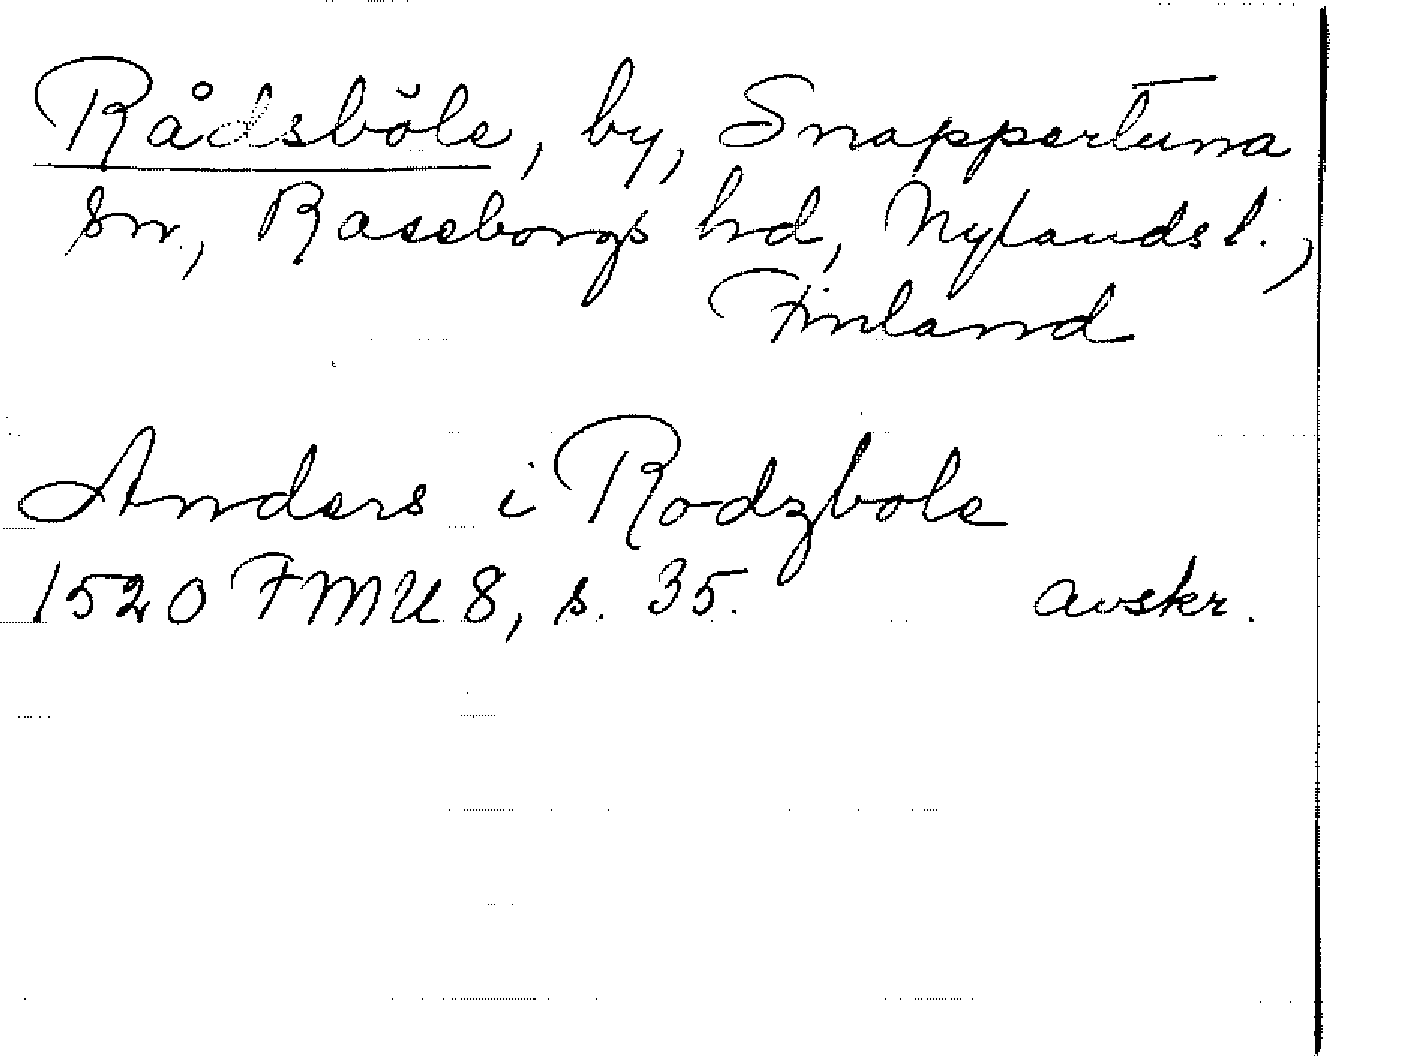 Rådsböle, by, Snappertuna
sn, Raseborgs hd, Nylands l.,
Finland
Anders i Rodzbole
1520 FMU 8, s. 35. avskr.